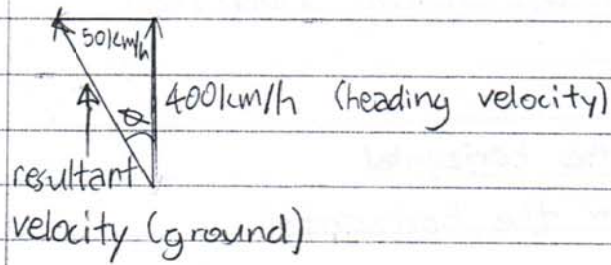 50km/h
400km/h (heading velocity)
θ
resultant
velocity (ground)